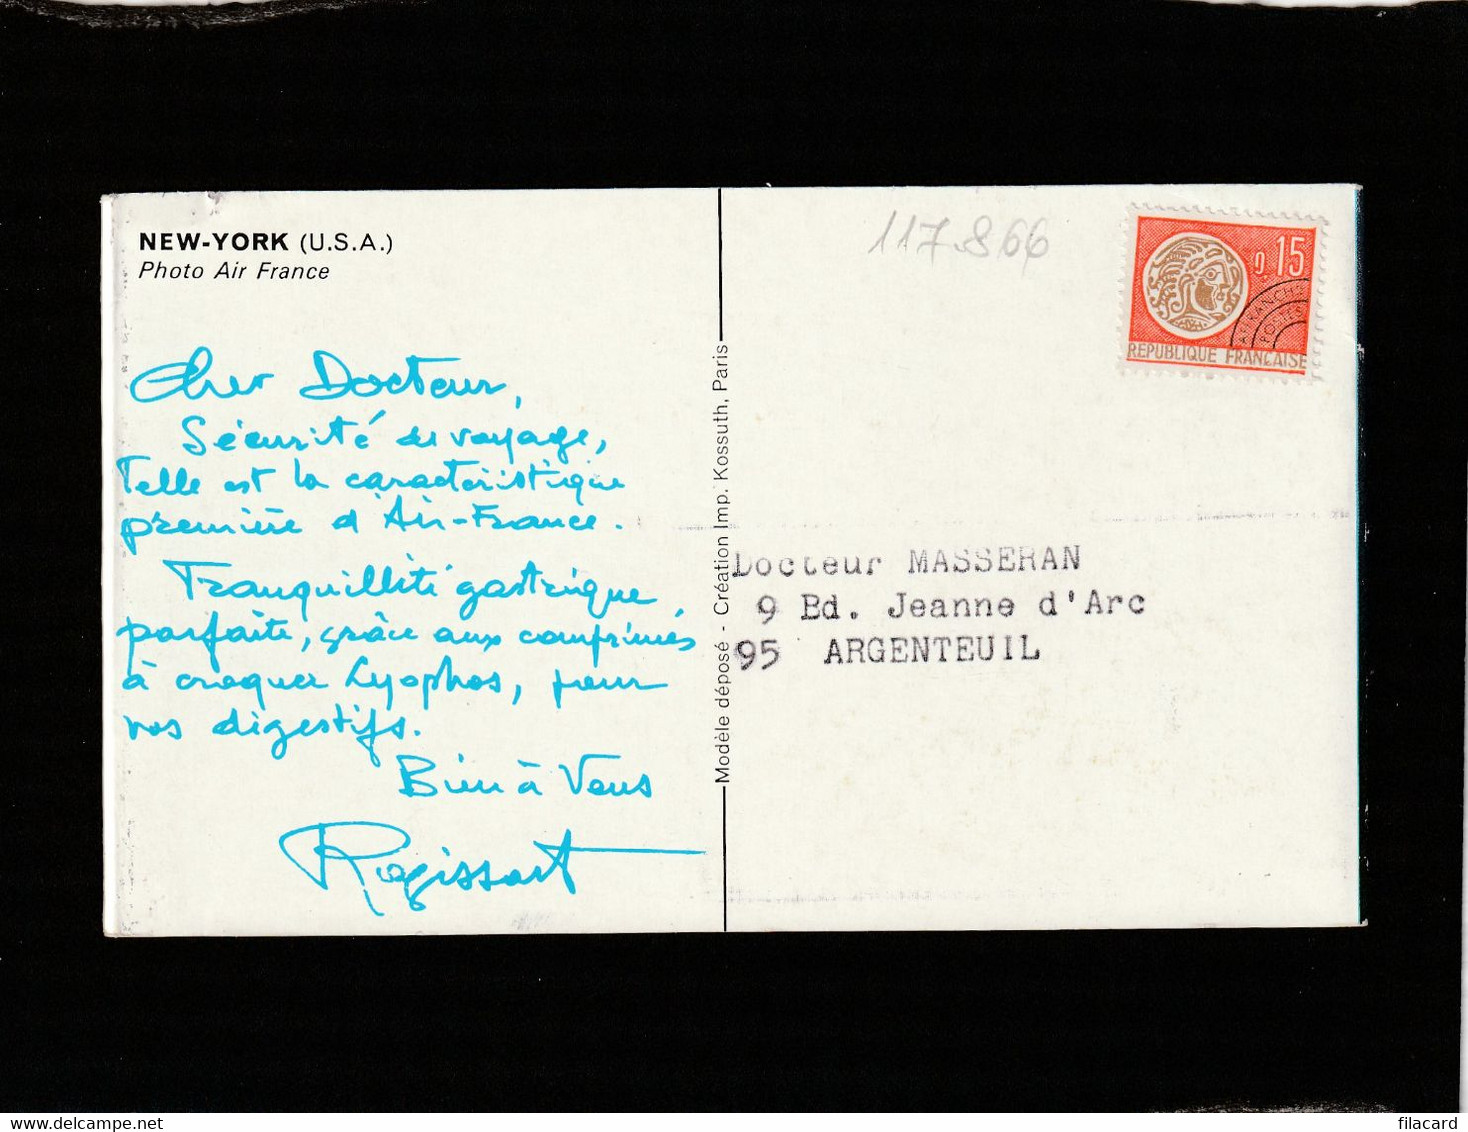 NEW-YORK (U.S.A.)
Photo Air France
Cher Docteur,
Sécurité du voyage,
Telle est la caractéristique
première d'Air-France.
Tranquillité gastrique
parfaite, grâce aux comprimés
à croquer Lyophos, pour
vos digestifs.
Bien à Vous
Regissart
Modèle déposé - Création Imp. Kossuth, Paris
117.866
0,15
AFFRANCHts
POSTES
REPUBLIQUE FRANCAISE
Docteur MASSERAN
9 Bd. Jeanne d'Arc
95 ARGENTEUIL
filacard